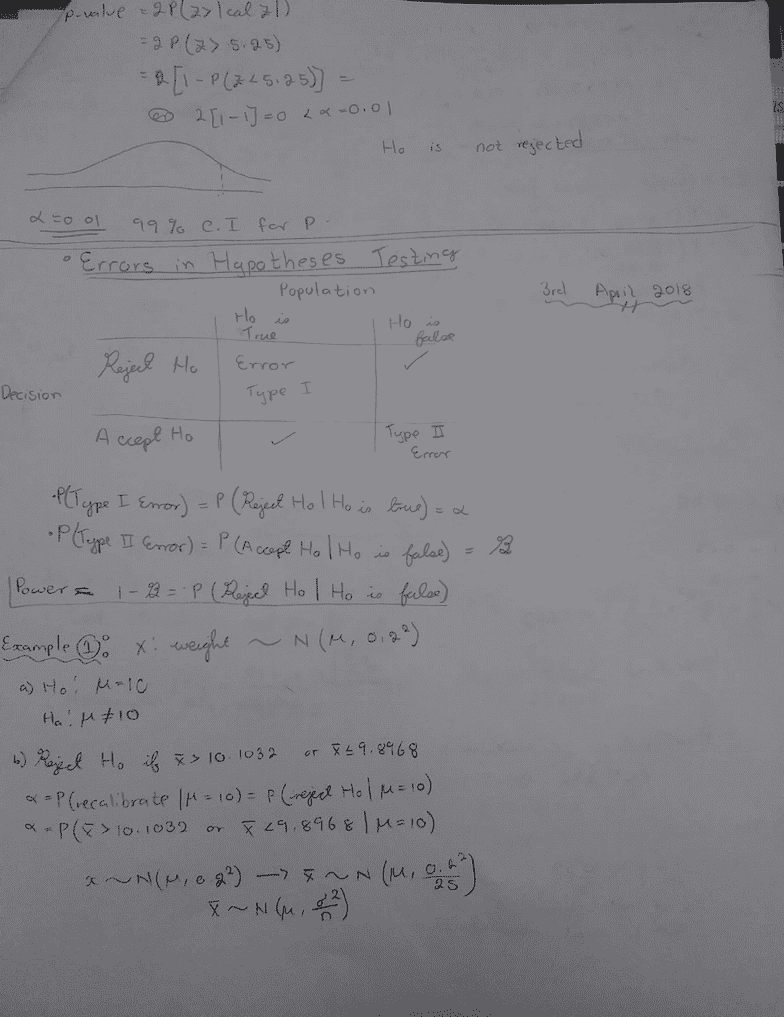 p-value = 2P(Z > |cal z|)
= 2P(Z > 5.25)
= 2[1 - P(Z < 5.25)] =
2[1-1] = 0 < α = 0.01
Ho is not rejected
α = 0.01 99% C.I for P.
• Errors in Hypotheses Testing
Population
3rd April 2018
Ho is True
Ho is false
Decision
Reject Ho Error Type I ✓
Accept Ho ✓ Type II Error
• P(Type I Error) = P(Reject Ho | Ho is true) = α
• P(Type II Error) = P(Accept Ho | Ho is false) = β
Power = 1 - β = P(Reject Ho | Ho is false)
Example ①: x: weight ~ N(μ, 0.2²)
a) Ho: μ = 10
Ha: μ ≠ 10
b) Reject Ho if x̄ > 10.1032 or x̄ ≤ 9.8968
α = P(recalibrate | μ = 10) = P(reject Ho | μ = 10)
α = P(x̄ > 10.1032 or x̄ < 9.8968 | μ = 10)
x ~ N(μ, 0.2²) → x̄ ~ N(μ, 0.2²/25)
x̄ ~ N(μ, σ²/n)